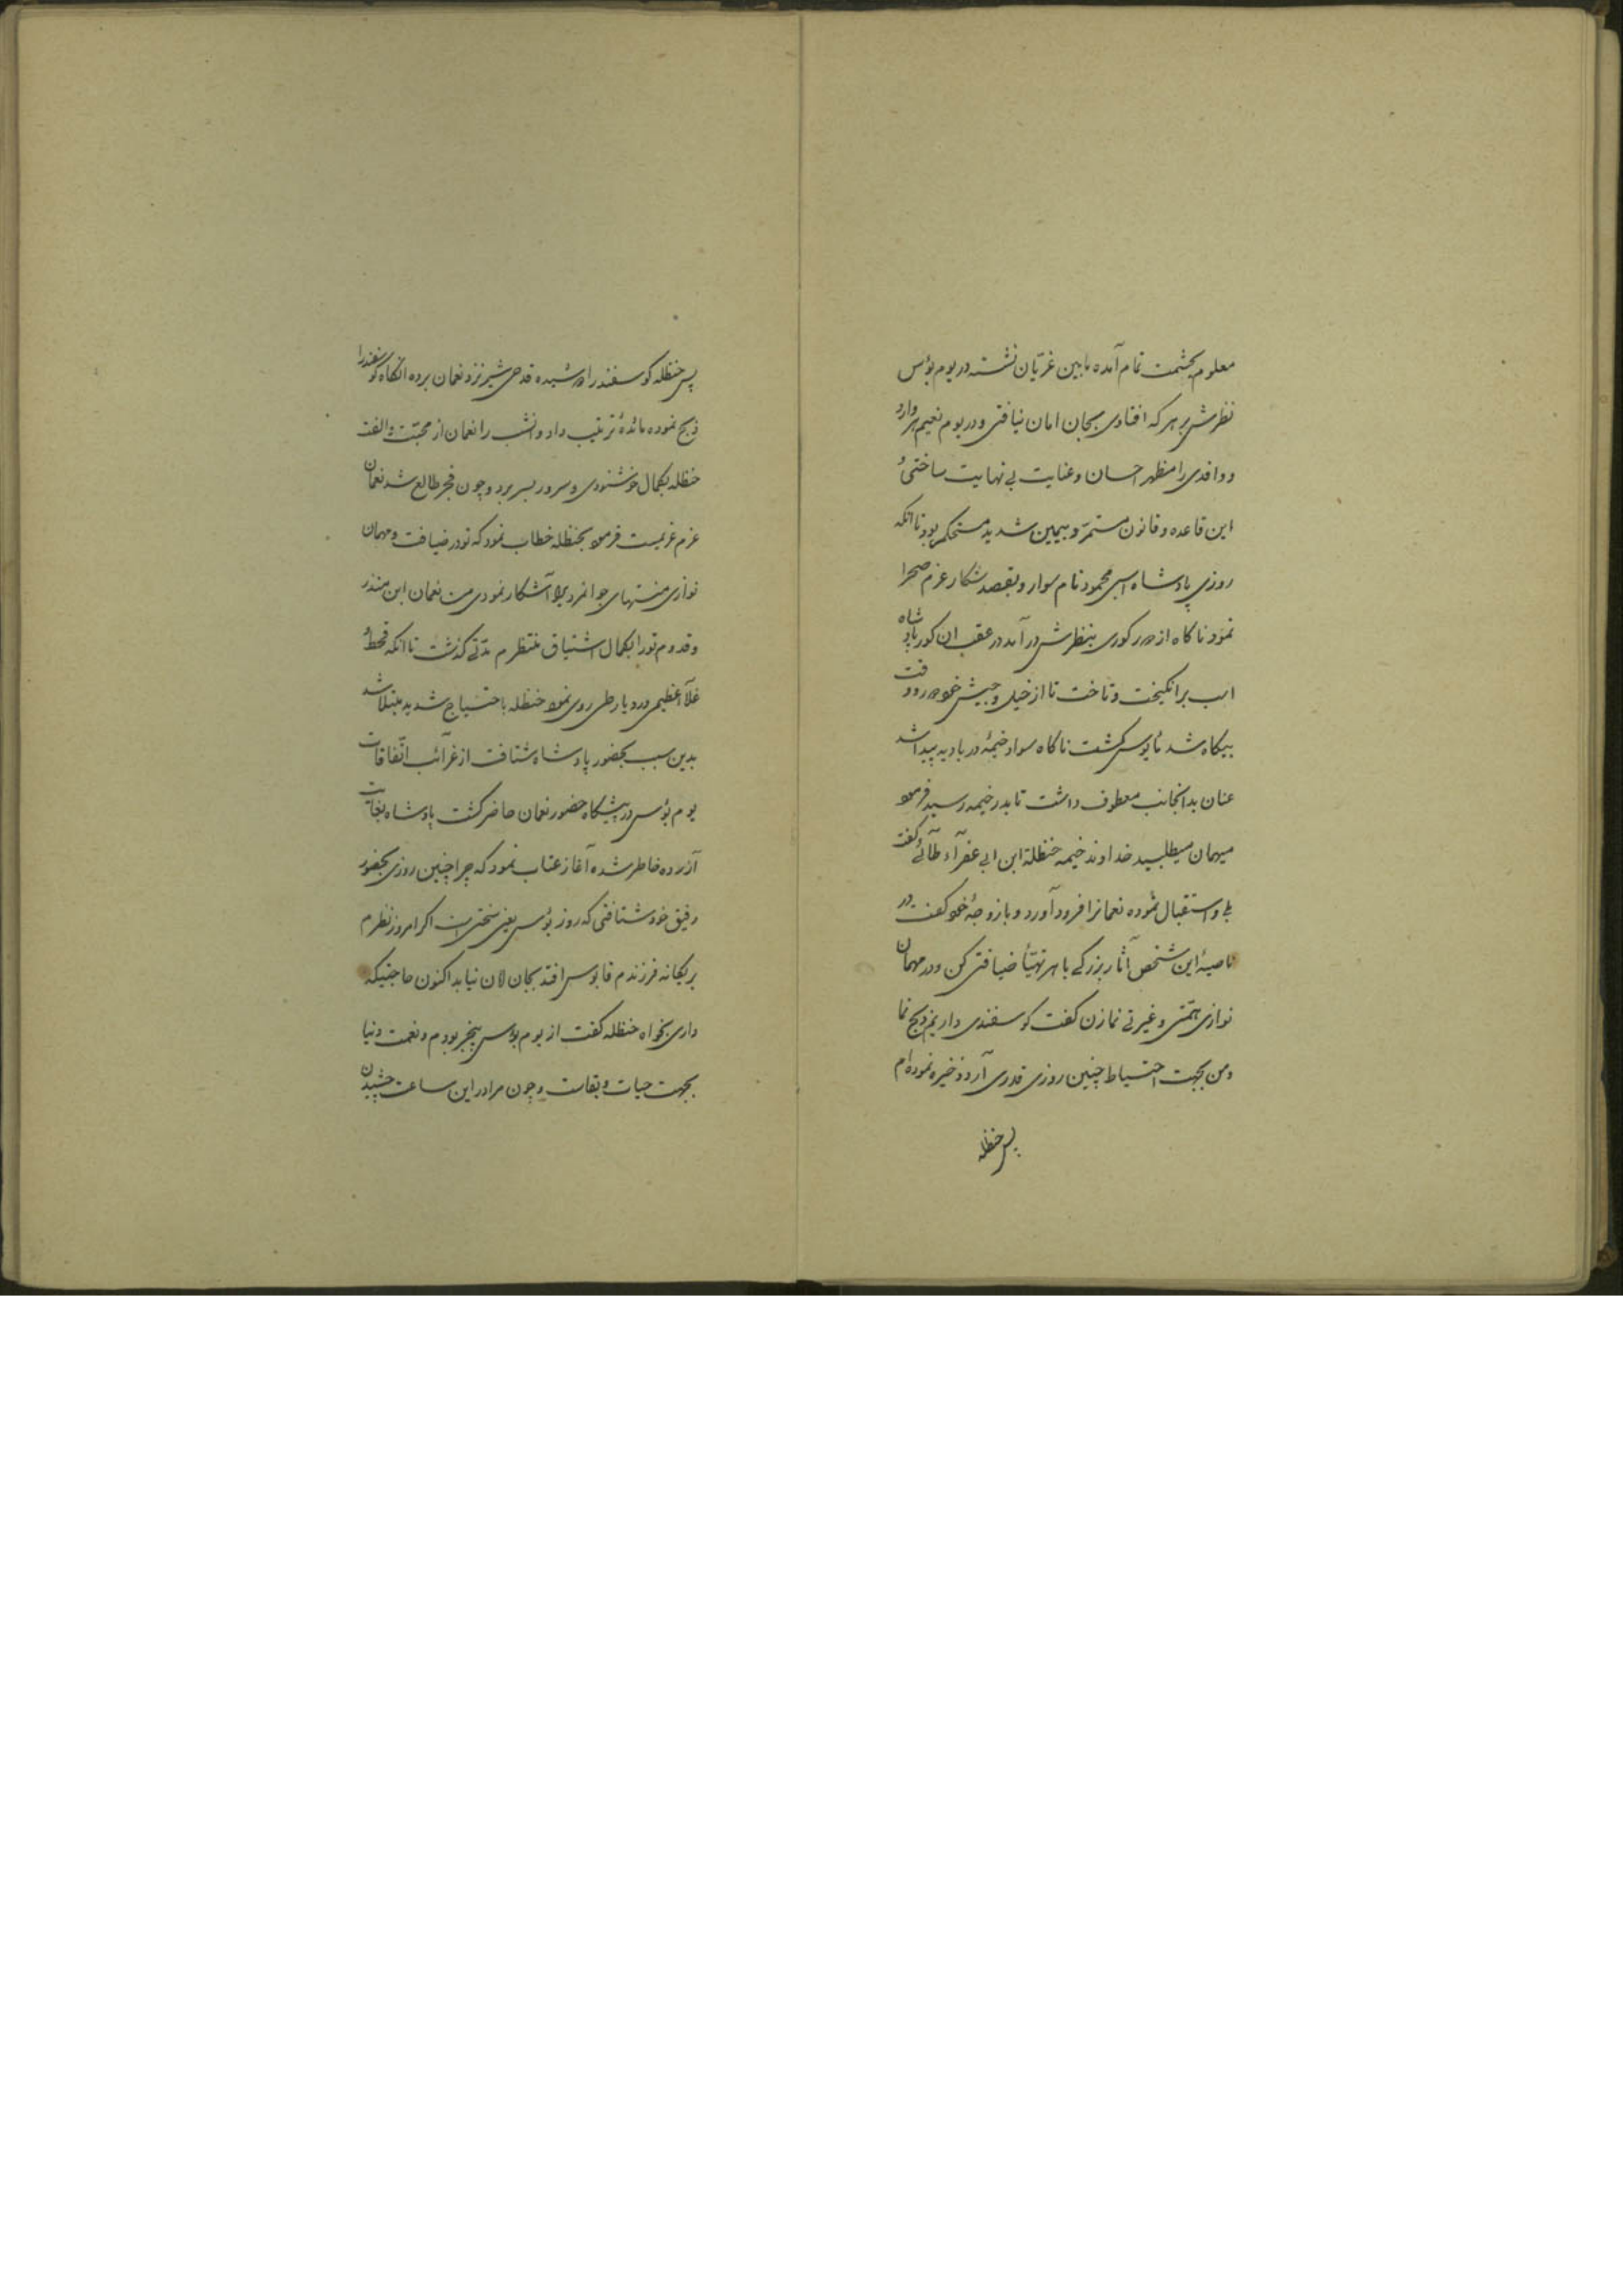 معلوم بحشمت تمام آمده مابین غریّان نشسته در یوم بؤس
نظرش بر هر که افتادی بجان امان نیافتی و در یوم نعیم هر وارد
و وافدی را مظهر احسان و عنایت بی نهایت ساختی و
این قاعده و قانون مستمرّ و بیمین شدید مستحکم بود تا آنکه
روزی پادشاه اسبی محمود نام سوار و بقصد شکار عزم صحرا
نمود ناگاه از دور کوری بنظرش در آمد در عقب ان کور پادشاه
اسب برانکیخت و تاخت تا از خیل و جیش خود دور و رفت
بیکاه شد مأیوس کشت ناکاه سواد خیمهٔ در بادیه پیدا شد
عنان بدانجانب معطوف داشت تا بدر خیمه رسید فرمود
میهمان میطلبید خداوند خیمه حنظلة ابن ابی عفرآء طآئی کفت
بلی و استقبال نموده نعمانرا فرود آورد و بازوجهٔ خود کفت در
ناصیهٔ این شخص آثار بزرکی باهر تهیّأ ضیافتی کن و در مهمان
نوازی همّتی و غیرتی نما زن کفت کوسفندی داریم ذبح نما
و من بجهت احتیاط چنین روزی قدری آرد ذخیره نموده‌ام
پس حنظله
پس حنظله کوسفند را دوشیده قدحی شیر نزد نعمان برده انکاه کوسفند را
ذبح نموده مائدهٔ ترتیب داد و انشب را نعمان از محبّت و الفت
حنظله بکمال خوشنودی و سرور بسر برد و چون فجر طالع شد نعمان
عزم عزیمت فرمود بحنظله خطاب نمود که تو در ضیافت و مهمان
نوازی منتهای جوانمردی را آشکار نمودی من نعمان ابن منذرم
و قدوم تو را بکمال اشتیاق منتظرم مدّتی کذشت تا آنکه قحط و
غلآء عظیمی در دیار طی روی نمود حنظله باحتیاج شدید مبتلا شد
بدین سبب بحضور پادشاه شتافت از غرائب اتّفاقات
یوم بؤس در پیشکاه حضور نعمان حاضر کشت پادشاه بغایت
آزرده خاطر شده آغاز عتاب نمود که چرا چنین روزی بحضور
رفیق خود شتافتی که روز بؤس یعنی سختی است اکر امروز نظرم
بر یکانه فرزندم قابوس افتد بجان امان نیابد اکنون حاجتیکه
داری بخواه حنظله کفت از یوم بؤس بیخبر بودم و نعمت دنیا
بجهت حیات و بقاست و چون مرا در این ساعت چشیدن